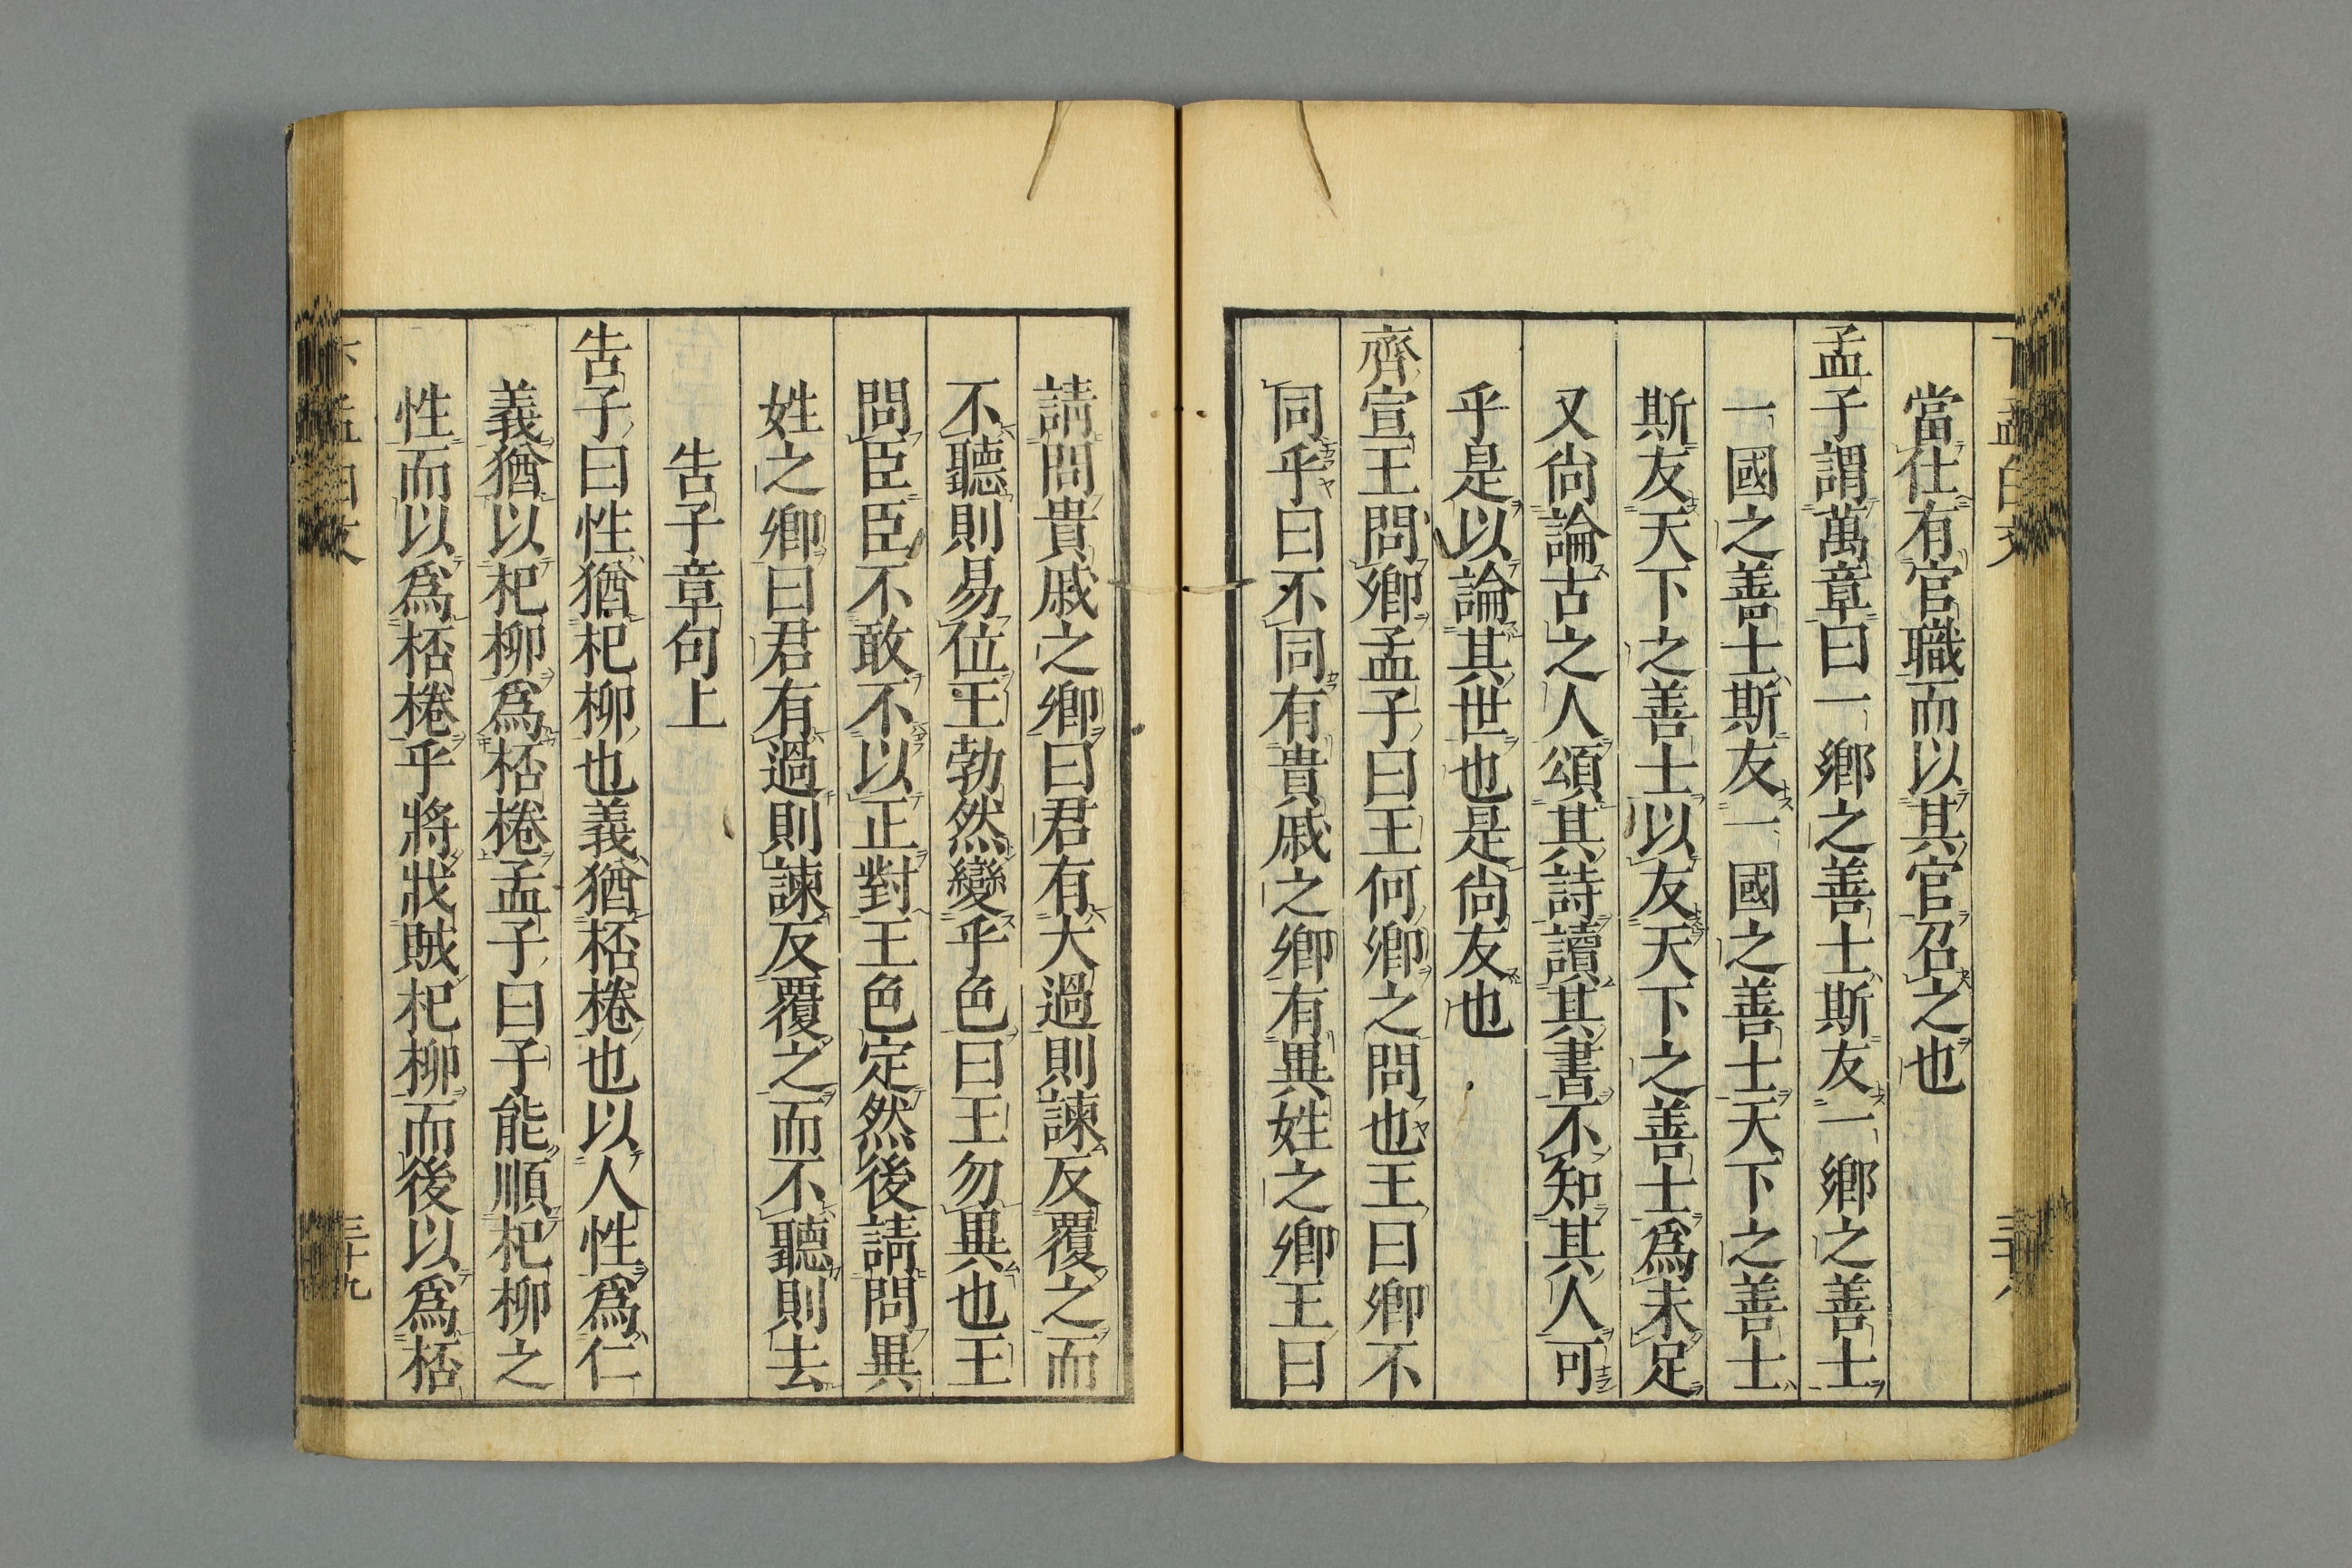 當仕有官職而以其官召之也
孟子謂萬章曰一鄉之善士斯友一鄉之善士
一國之善士斯友一國之善士天下之善士
斯友天下之善士以友天下之善士爲未足
又尙論古之人頌其詩讀其書不知其人可
乎是以論其世也是尙友也
齊宣王問卿孟子曰王何卿之問也王曰卿不
同乎曰不同有貴戚之卿有異姓之卿王曰
請問貴戚之卿曰君有大過則諫反覆之而
不聽則易位王勃然變乎色曰王勿異也王
問臣臣不敢不以正對王色定然後請問異
姓之卿曰君有過則諫反覆之而不聽則去
告子章句上
告子曰性猶杞柳也義猶桮棬也以人性爲仁
義猶以杞柳爲桮棬孟子曰子能順杞柳之
性而以爲桮棬乎將戕賊杞柳而後以爲桮
三十九